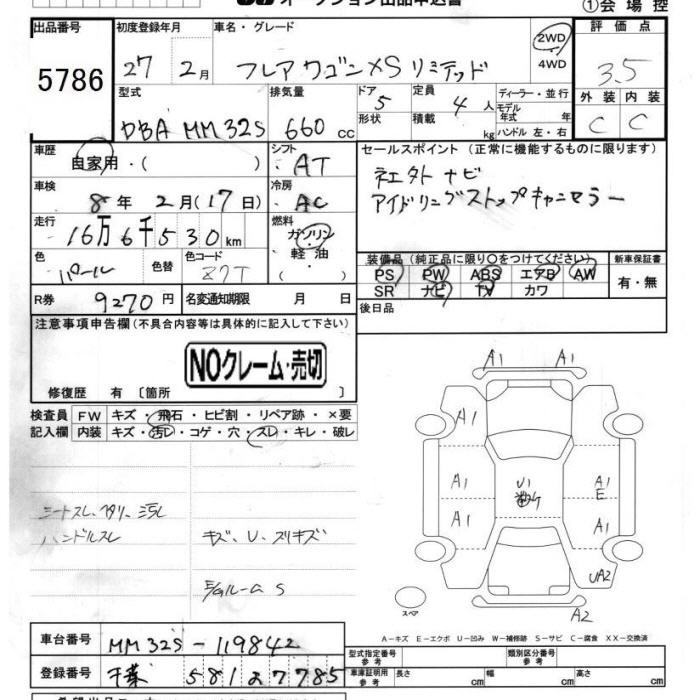 オークション出品申込書
①会場控
出品番号
5786
初度登録年月
27 2月
車名・グレード
フレアワゴンXSリミテッド
2WD
4WD
評価点
3.5
型式
DBA MM32S
排気量
660 cc
ドア 5
形状
定員 4 人
積載 kg
ディーラー・並行
モデル年式 年
ハンドル 左・右
外装 内装
C C
車歴
自家用・( )
シフト
AT
車検
8年 2月(17日)
冷房
AC
走行
16万6千530km
燃料
ガソリン
軽油
・( )
色
パール
色替
色コード
Z7T
R券
9270円
名変通知期限 月 日
セールスポイント(正常に機能するものに限ります)
ナビ
アイドリングストップキャンセラー
装備品(純正品に限り○をつけてください)
PS PW ABS エアB AW
SR ナビ TV カワ
新車保証書
有・無
後日品
注意事項申告欄(不具合内容等は具体的に記入して下さい)
NOクレーム・売切
修復歴 有〔箇所 〕
検査員記入欄
FW キズ・飛石・ヒビ割・リペア跡・×要
内装 キズ・汚レ・コゲ・穴・スレ・キレ・破レ
シートスレ、ヘタリ、汚レ
ハンドルスレ
キズ、U、スリキズ
ルームS
A1 A1
A1
A1 U1 A1
E
A1 A1
UA2
スペア
A2
A-キズ E-エクボ U-凹み W-補修跡 S-サビ C-腐食 XX-交換済
車台番号
MM32S-119842
登録番号
千葉 581 27785
型式指定番号 参考
類別区分番号 参考
車庫証明用 参考
長さ cm 幅 cm 高さ cm